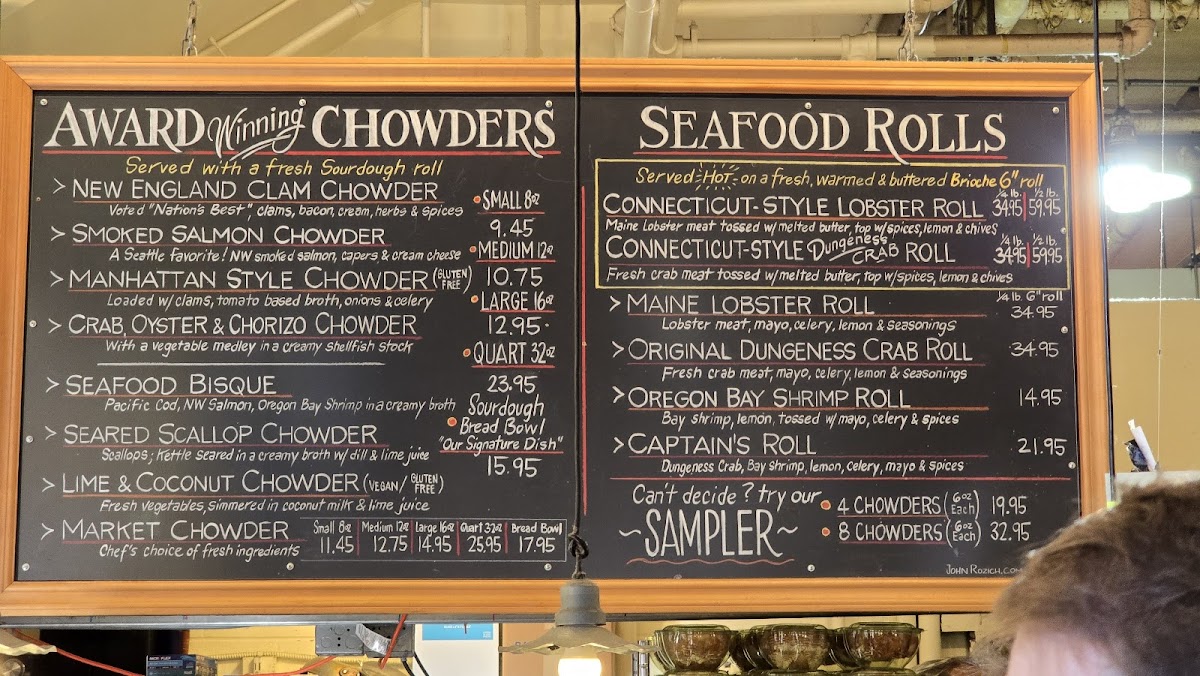 AWARD Winning CHOWDERS
Served with a fresh Sourdough roll
> NEW ENGLAND CLAM CHOWDER
Voted "Nation's Best", clams, bacon, cream, herbs & spices
> SMOKED SALMON CHOWDER
A Seattle favorite! NW smoked salmon, capers & cream cheese
> MANHATTAN STYLE CHOWDER (GLUTEN FREE)
Loaded w/ clams, tomato based broth, onions & celery
> CRAB, OYSTER & CHORIZO CHOWDER
With a vegetable medley in a creamy shellfish stock
> SEAFOOD BISQUE
Pacific Cod, NW Salmon, Oregon Bay Shrimp in a creamy broth
> SEARED SCALLOP CHOWDER
Scallops; Kettle seared in a creamy broth w/ dill & lime juice
> LIME & COCONUT CHOWDER (VEGAN/ GLUTEN FREE)
Fresh vegetables, Simmered in coconut milk & lime juice
SMALL 8oz
9.45
MEDIUM 12oz
10.75
LARGE 16oz
12.95
QUART 32oz
23.95
Sourdough
Bread Bowl
"Our Signature Dish"
15.95
> MARKET CHOWDER
Chef's choice of fresh ingredients
Small 8oz Medium 12oz Large 16oz Quart 32oz Bread Bowl
11.45 12.75 14.95 25.95 17.95
SEAFOOD ROLLS
Served HOT on a fresh, warmed & buttered Brioche 6" roll
1/4 lb. 1/2 lb.
CONNECTICUT-STYLE LOBSTER ROLL 34.95 59.95
Maine Lobster meat tossed w/melted butter, top w/spices, lemon & chives
1/4 lb. 1/2 lb.
CONNECTICUT-STYLE Dungeness CRAB ROLL 34.95 59.95
Fresh crab meat tossed w/melted butter, top w/spices, lemon & chives
1/4 lb 6" roll
> MAINE LOBSTER ROLL 34.95
Lobster meat, mayo, celery, lemon & seasonings
> ORIGINAL DUNGENESS CRAB ROLL 34.95
Fresh crab meat, mayo, celery, lemon & seasonings
> OREGON BAY SHRIMP ROLL 14.95
Bay shrimp, lemon, tossed w/mayo, celery & spices
> CAPTAIN'S ROLL 21.95
Dungeness Crab, Bay shrimp, lemon, celery, mayo & spices
Can't decide? try our
~SAMPLER~
4 CHOWDERS (6oz Each) 19.95
8 CHOWDERS (6oz Each) 32.95
JOHN ROZICH.COM